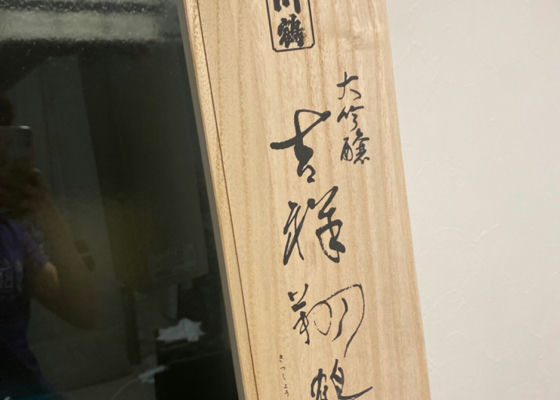 川鶴
大吟醸
吉祥翔鶴
きっしょう